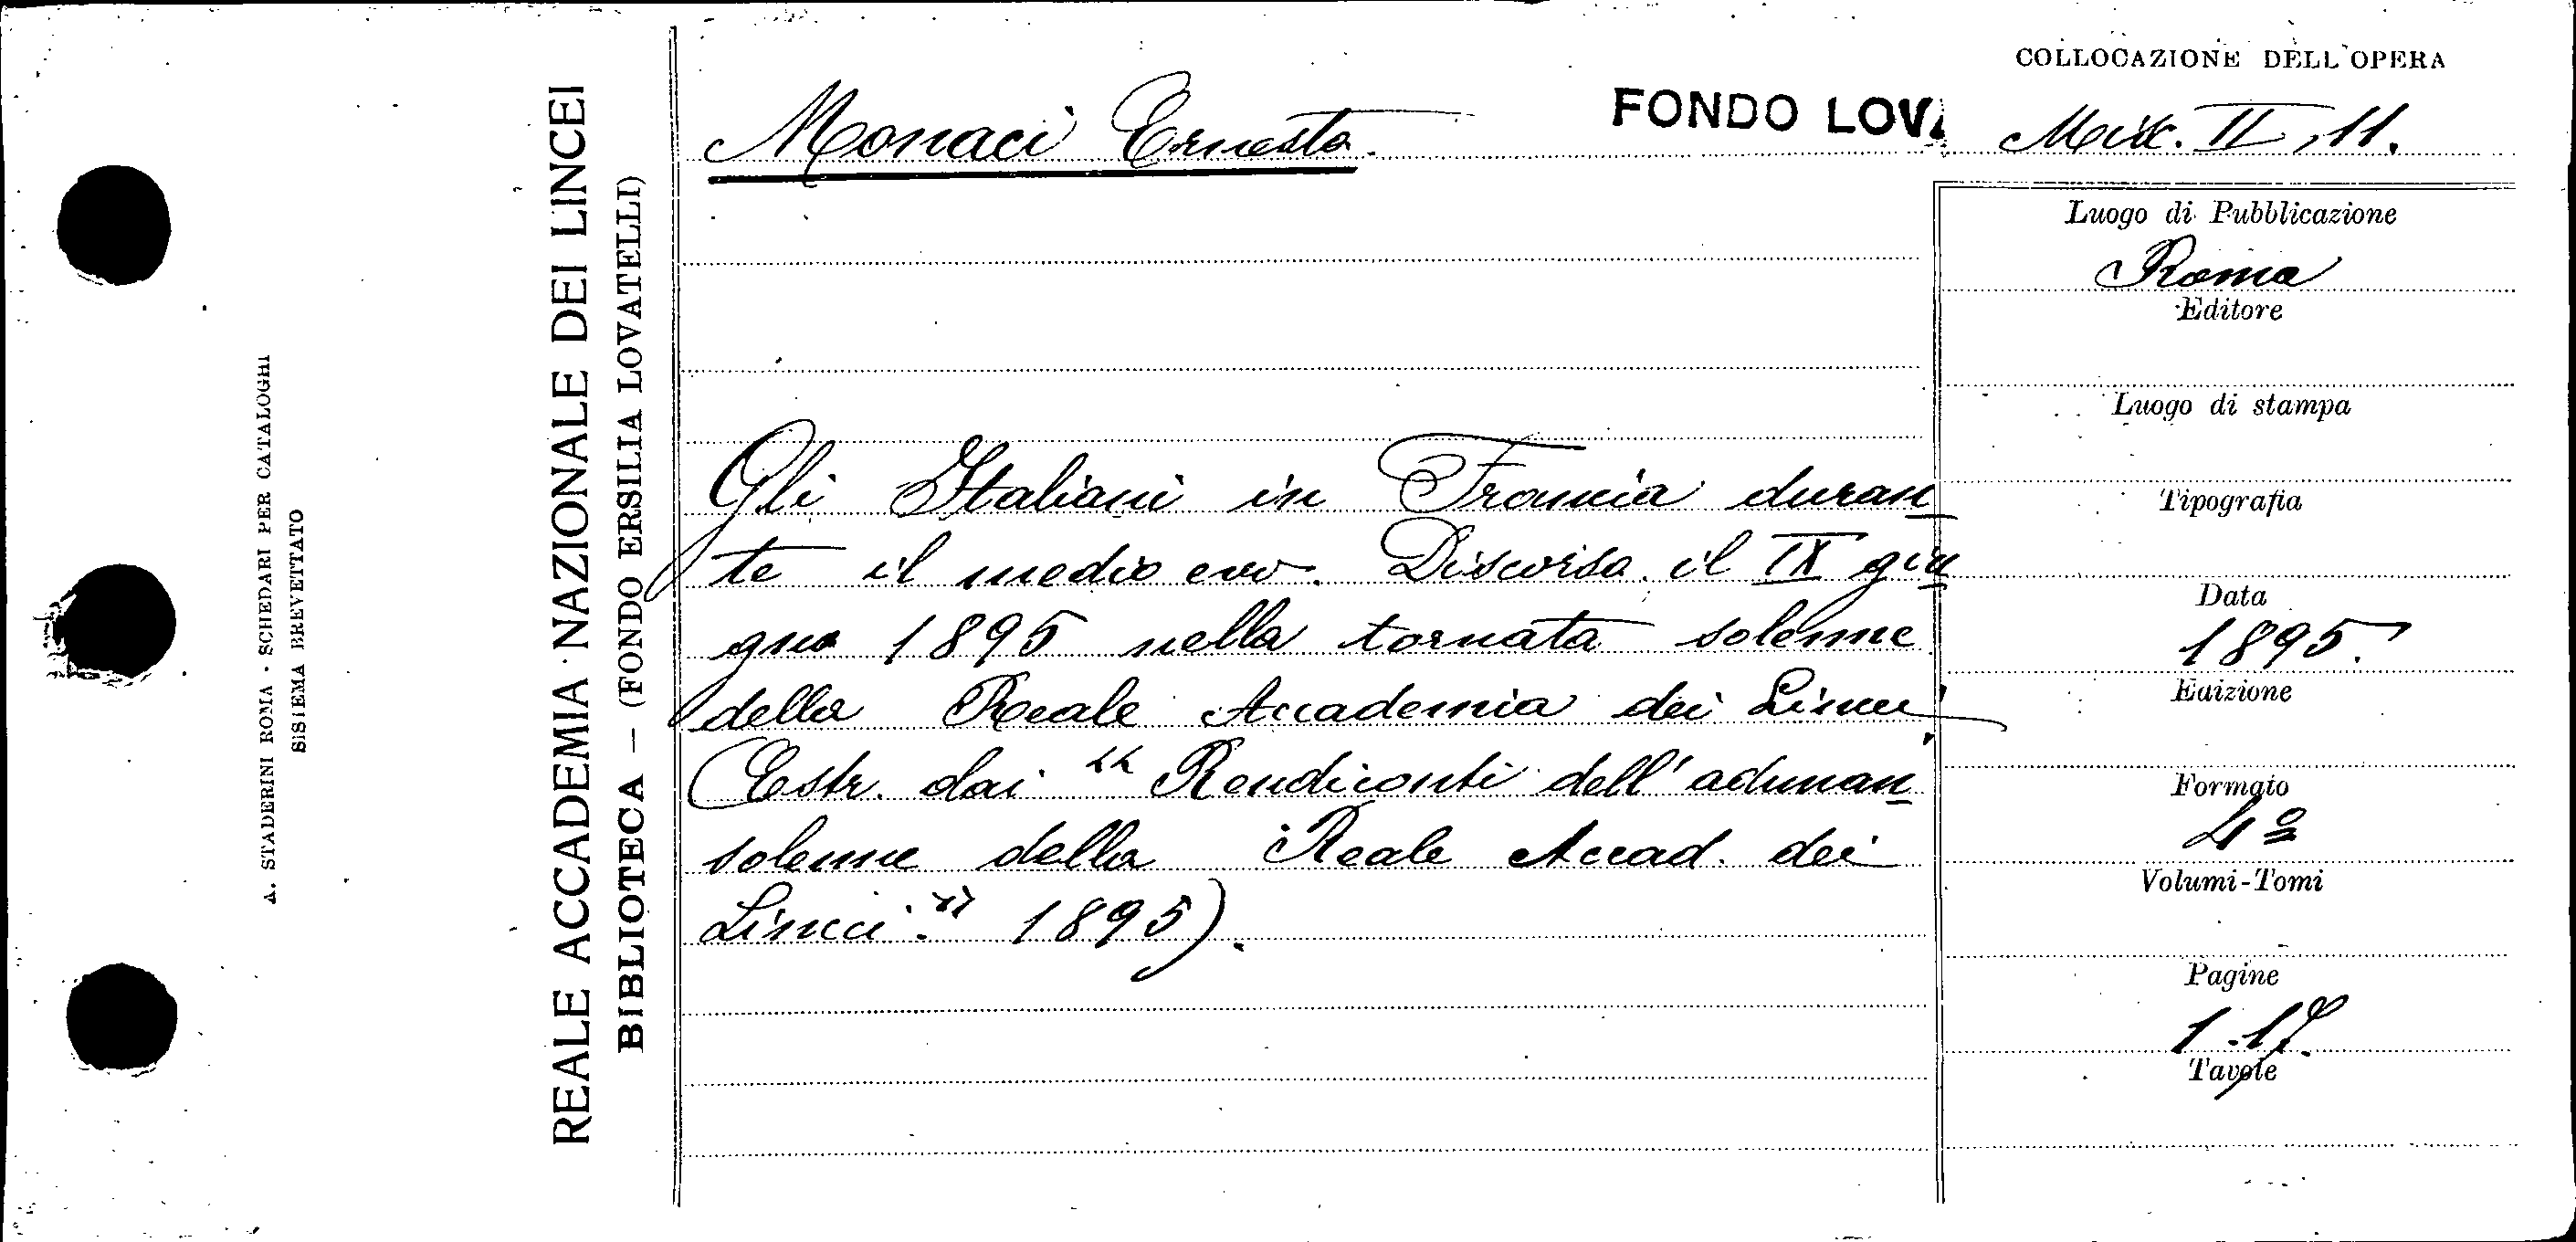 A. STADERINI ROMA - SCHEDARI PER CATALOGHI
SISTEMA BREVETTATO
REALE ACCADEMIA NAZIONALE DEI LINCEI
BIBLIOTECA — (FONDO ERSILIA LOVATELLI)
Monaci Ernesto.
FONDO LOVA
Gli Italiani in Francia duran
te il medio evo. Discorso il IX giu
gno 1895 nella tornata solenne
della Reale Accademia dei Lincei
(Estr. dai "Rendiconti dell'adunan
solenne della Reale Accad. dei
Lincei." 1895).
COLLOCAZIONE DELL'OPERA
Misc. II, 11.
Luogo di Pubblicazione
Roma
Editore
Luogo di stampa
Tipografia
Data
1895.
Edizione
Formato
4º
Volumi-Tomi
Pagine
1-17.
Tavole